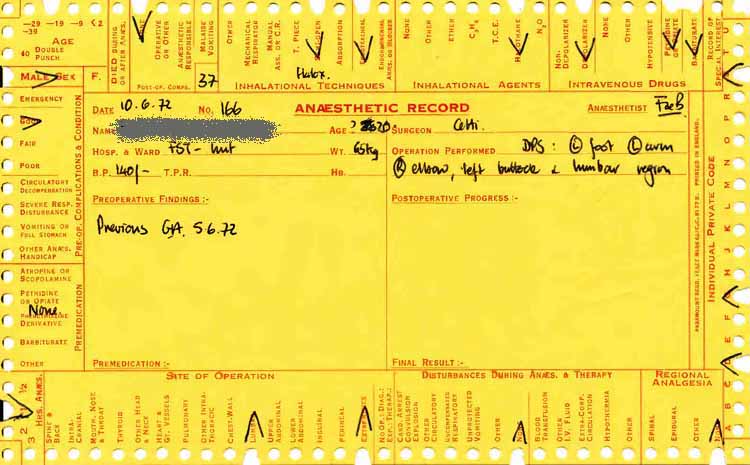 -29 -19 -9 <2
-39
AGE
40 DOUBLE
PUNCH
MALE SEX F.
DIED DURING
OR AFTER ANÆS.
OPERATIVE
OR OTHER
ANÆSTHETIC
RESPONSIBLE
MALAISE
VOMITING
OTHER
POST-OP. COMPS.
37
MECHANICAL
RESPIRATOR
MANUAL
ASS. OR C.R.
T. PIECE
ABSORPTION
Halox.
INHALATIONAL TECHNIQUES
NONE
OTHER
ETHER
C₃H₆
T.C.E.
HALOTHANE
N₂O
INHALATIONAL AGENTS
NON-
DEPOLARIZER
DEPOLARIZER
NONE
OTHER
HYPOTENSIVE
PETHIDINE
BARBITURATE
INTRAVENOUS DRUGS
RECORD OF
SPECIAL INTEREST
EMERGENCY
GOOD
FAIR
POOR
CIRCULATORY
DECOMPENSATION
SEVERE RESP.
DISTURBANCE
VOMITING OR
FULL STOMACH
OTHER ANÆS.
HANDICAP
PRE-OP. COMPLICATIONS & CONDITION
ATROPINE OR
SCOPOLAMINE
PETHIDINE
OR OPIATE
None
DERIVATIVE
BARBITURATE
OTHER
PREMEDICATION
DATE 10.6.72 NO. 166 ANÆSTHETIC RECORD ANÆSTHETIST
NAME AGE 20 SURGEON
HOSP. & WARD FST - WT. 65kg OPERATION PERFORMED DPS: (L) foot (L) arm
B.P. 140/- T.P.R. HB. (R) elbow, left buttock & lumbar region
PREOPERATIVE FINDINGS :- POSTOPERATIVE PROGRESS :-
Previous GA. 5.6.72
PREMEDICATION :- FINAL RESULT :-
INDIVIDUAL PRIVATE CODE
PRINTED IN ENGLAND.
A B C D E F G H J K L M N O P Q R S T U
SITE OF OPERATION
DISTURBANCES DURING ANÆS. & THERAPY
REGIONAL
ANALGESIA
3 2 1 ½
HRS. ANÆS.
SPINE &
BACK
INTRA-
CRANIAL
MOUTH, NOSE
& THROAT
THYROID
OTHER HEAD
& NECK
HEART &
GT. VESSELS
PULMONARY
OTHER INTRA-
THORACIC
CHEST-WALL
LUMBAR
UPPER
ABDOMINAL
LOWER
ABDOMINAL
INGUINAL
PERINEAL
EXTREMITIES
NO OP., DIAG.,
EXC. THERAP.
CARD. ARREST
CONVULSION
EXPLOSION
OTHER
CIRCULATORY
UNEXPECTED
RESPIRATORY
UNPROTECTED
VOMITING
OTHER
BLOOD
TRANSFUSION
OTHER
I.V. FLUID
EXTRA-CORP.
CIRCULATION
HYPOTHERMIA
OTHER
SPINAL
EPIDURAL
OTHER